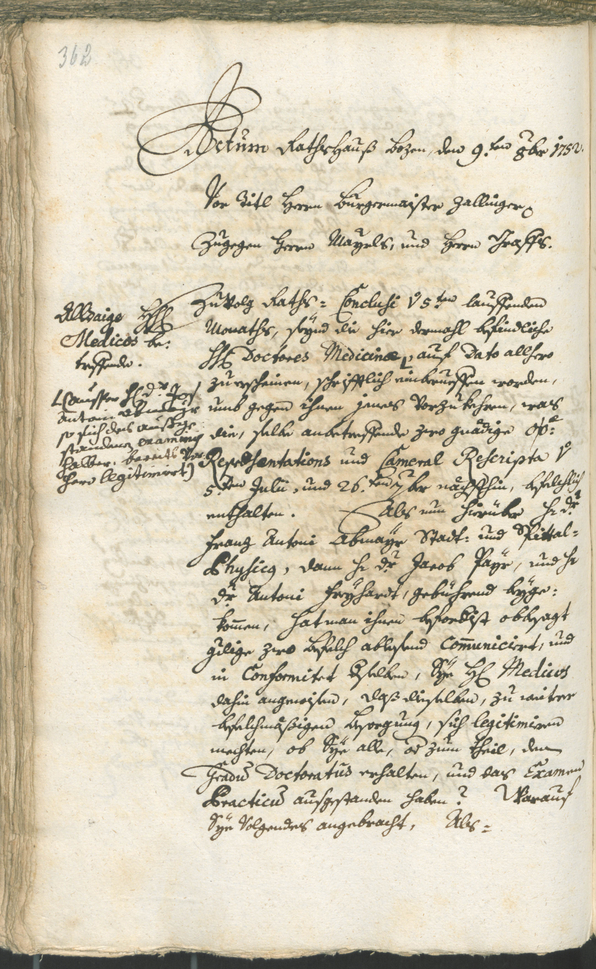 362
Actum Rathshauß Bozen, den 9.ten 8br 1752.
Vor Titl Herrn Burgermaister Zallinger,
Zugegen Herrn Mayrls, und Herrn Graffs.
Alldaige HH.
Medicos be:
treffende.
(ausser H. Dr. Jos:
Antoni
so sich des ausge:
standenen examinis
halber, bereits vor:
hero legitimiert)
Zuvolg Raths-Conclusi v 5ten lauffenden
Monaths, seynd die hier dermahl befindliche
HH. Doctores Medicinæ, auf Dato allhero
zu erscheinen, schrifftlich einberueffen worden,
umb gegen ihnen jenes Vorzukehren, was
die, selbe anbetreffende zwo gnädige O:Ö:
Repræsentations und Cameral Rescripta v
5.ten Julii, und 26.ten 7br nächsthin, befelchlich
enthalten. Als nun hierüber H: Dr.
Franz Antoni Abmayr Stadt- und Spittal-
Physicus, dann H: Dr. Jacob Payr, und H:
Dr. Antoni Freyhardt, gebührend beyge:
kommen, hat man ihnen obbesagt
zwo Befelch ablesend communiciert, und
in Conformitet derselben, Sye HH. Medicos
dahin angewisen, daß dieselben, zu weiter
befelchmäßigen besorgung, sich legitimieren
mechten, ob Sye alle, od zum theil, den
Gradum Doctoratus erhalten, und das Examen
Practicum ausgestanden haben? Worauf
Sye Volgendes angebracht, Als: